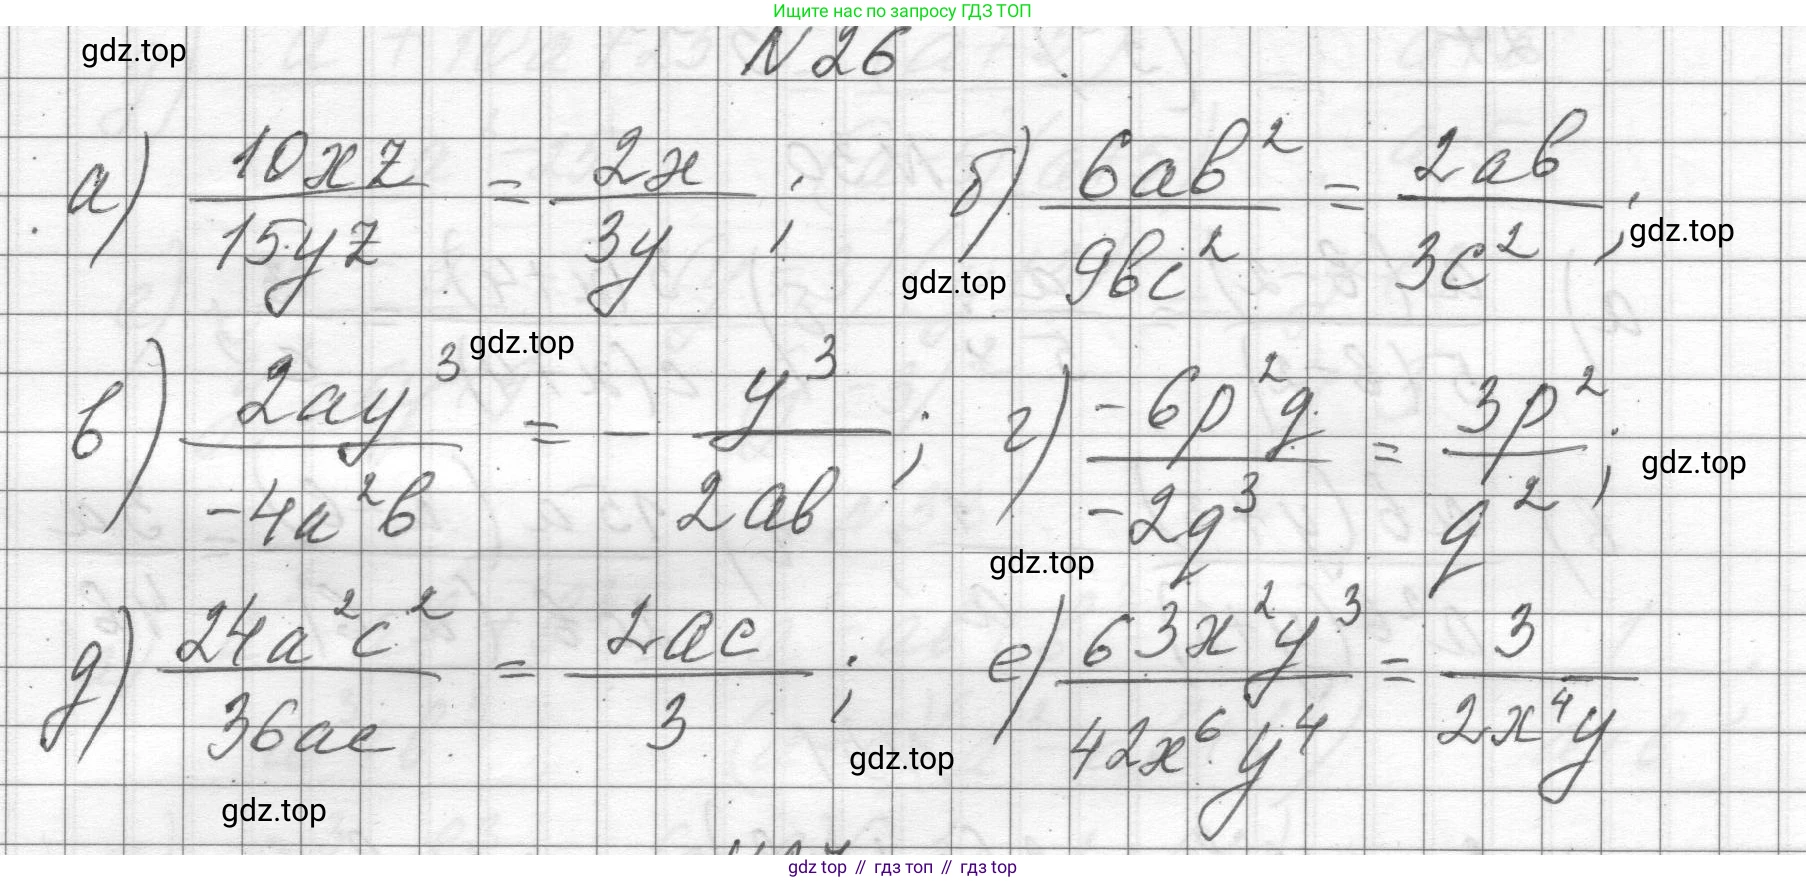 Ищите нас по запросу ГДЗ ТОП
gdz.top
N 26
а) 10xz/15yz = 2x/3y ; б) 6ab²/9bc² = 2ab/3c² ;
gdz.top
gdz.top
gdz.top
в) 2ay³/-4a²b = - y³/2ab ; г) -6p²q/-2q³ = 3p²/q² ;
gdz.top
gdz.top
д) 24a²c²/36ac = 2ac/3 ; е) 63x²y³/42x⁶y⁴ = 3/2x⁴y
gdz.top
gdz.top
gdz top // гдз топ // гдз top